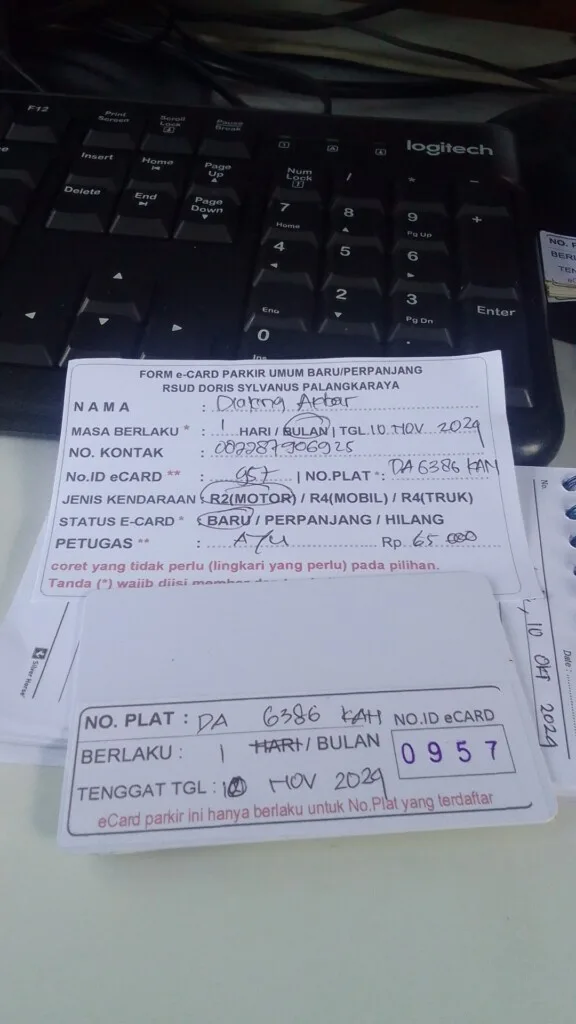 F12
Print Screen
Scroll Lock
Pause Break
logitech
Insert
Home
Page Up
Num Lock
/
*
-
Delete
End
Page Down
7
Home
8
9
Pg Up
+
4
5
6
2
3
Pg Dn
Enter
End
0
Ins
.
NO. P
BERL
TEN
FORM e-CARD PARKIR UMUM BARU/PERPANJANG
RSUD DORIS SYLVANUS PALANGKARAYA
NAMA :
MASA BERLAKU * : 1 HARI / BULAN | TGL 10 NOV 2024
NO. KONTAK : 082287906925
No.ID eCARD ** : 957 | NO.PLAT *: DA 6386 KAH
JENIS KENDARAAN : R2(MOTOR) / R4(MOBIL) / R4(TRUK)
STATUS E-CARD * : BARU / PERPANJANG / HILANG
PETUGAS ** : AYU Rp. 65.000
coret yang tidak perlu (lingkari yang perlu) pada pilihan.
Tanda (*) wajib diisi
NO. PLAT : DA 6386 KAH
NO.ID eCARD
BERLAKU : 1 HARI / BULAN
0957
TENGGAT TGL : 10 NOV 2024
eCard parkir ini hanya berlaku untuk No.Plat yang terdaftar
No.
Date :
10 OKT 2024